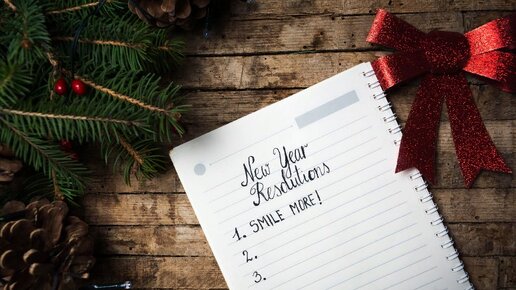 New Year
Resolutions
1. SMILE MORE!
2.
3.